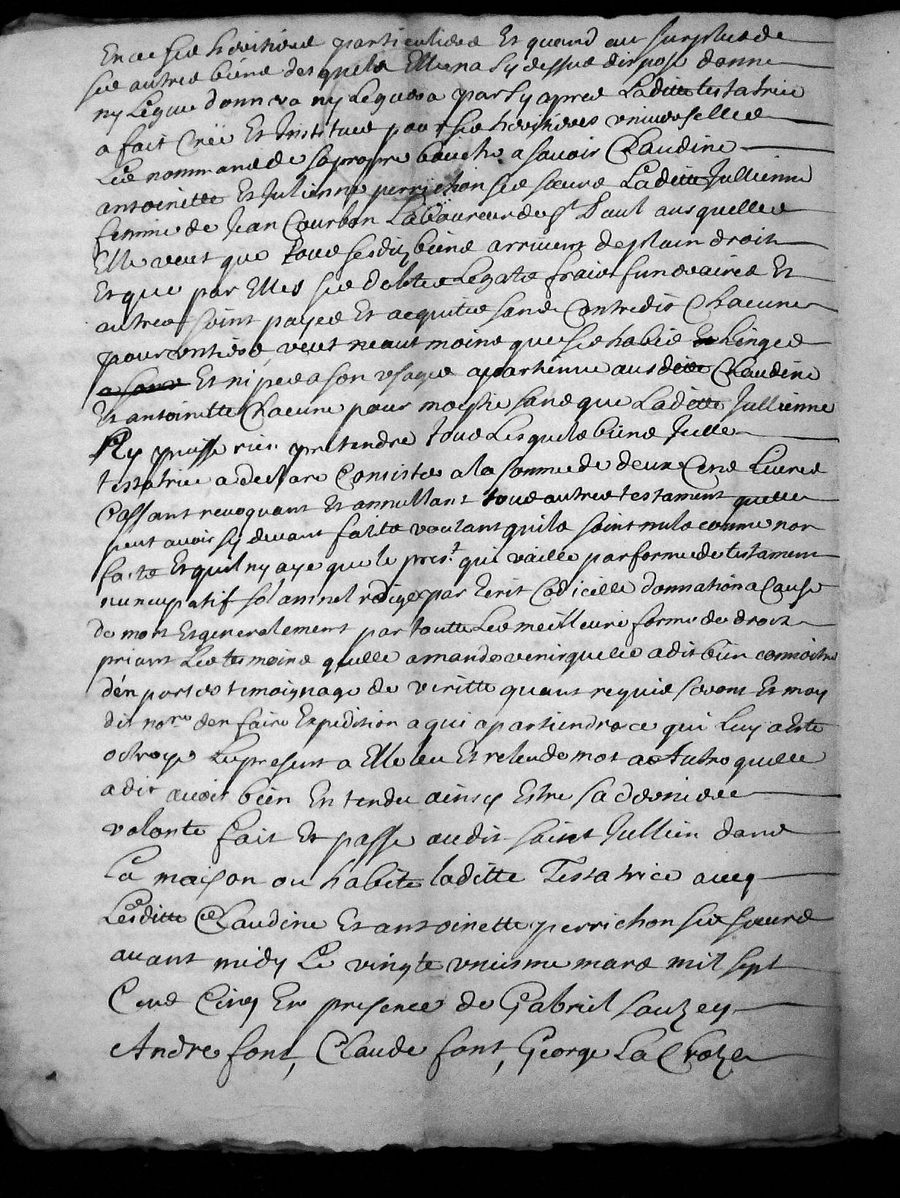 En ce ses heritiere particuliere Et quand au surplus de
ses autres biens desquels Elle na sy dessus dispose donne
ny Legue donnera ny Leguera par sy apres Laditte testatrice
a fait Créé Et Institue pour ses heritieres universelles
Les nommand de sa propre bouche a savoir Claudine
antoinette Et Jullienne perrichon ses sœurs Laditte Jullienne
femme de Jean Courbon Laboureur de St Paul ausquelles
Elle veut que tous sesdiz biens arrivent de plain droit
Et que par Elles ses debtes Legats frais funeraires Et
autres soint payes Et acquites sans Contredit Chacune
pour entiere veut neautmoins que ses habis Et Linges
Et nipes a son usage apartienne ausdittes Claudine
Et antoinette Chacune pour moytie sans que Laditte Jullienne
Ny puisse rien pretendre tous Lesquels biens Jcelle
testatrice a declare Consister a la somme de deux Cens Livres
Cassant revoquant Et annullant tous autres testament quelle
peut avoir sy devant faits voulant quils soint nuls comme non
faits Et quil ny aye que le prest qui vaille par forme de testament
nuncupatif solamnel redige par Ecrit Codicille donnation a Cause
de mort Et generalement par toutte Les meilleure forme de droit
priant Les tesmoins quelle a mande venir quelle a dit bien connoitre
den porter temoignage de veritte quant requis seront Et moy
dit nore den faire Expedition a qui apartiendra ce qui Luy a Este
octroye Le present a Elle leu Et releu de mot a autre quelle
a dit avoir bien Entendu ainsy Estre sa derniere
volonte fait Et passe audit saint Jullien dans
La maison ou habite laditte Testatrice avecq
Lesditte Claudine Et antoinette perrichon ses sœurs
avant midy Le vingte unieme mars mil sept
Cens Cinq En presence de Gabriel sauzey
Andre font, Claude font, George La Croze